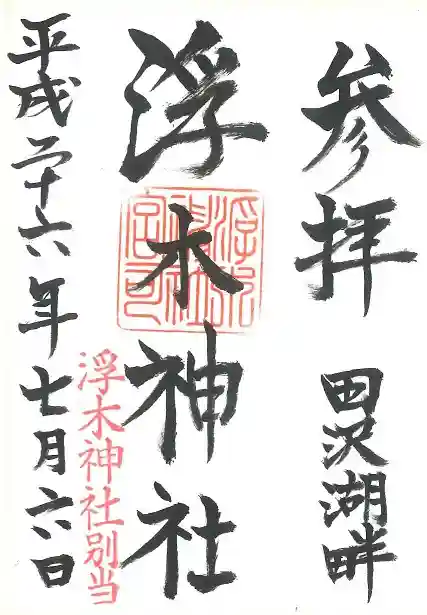 参拝
田沢湖畔
浮木神社
浮木神社宮司
浮木神社別当
平成二十六年七月六日